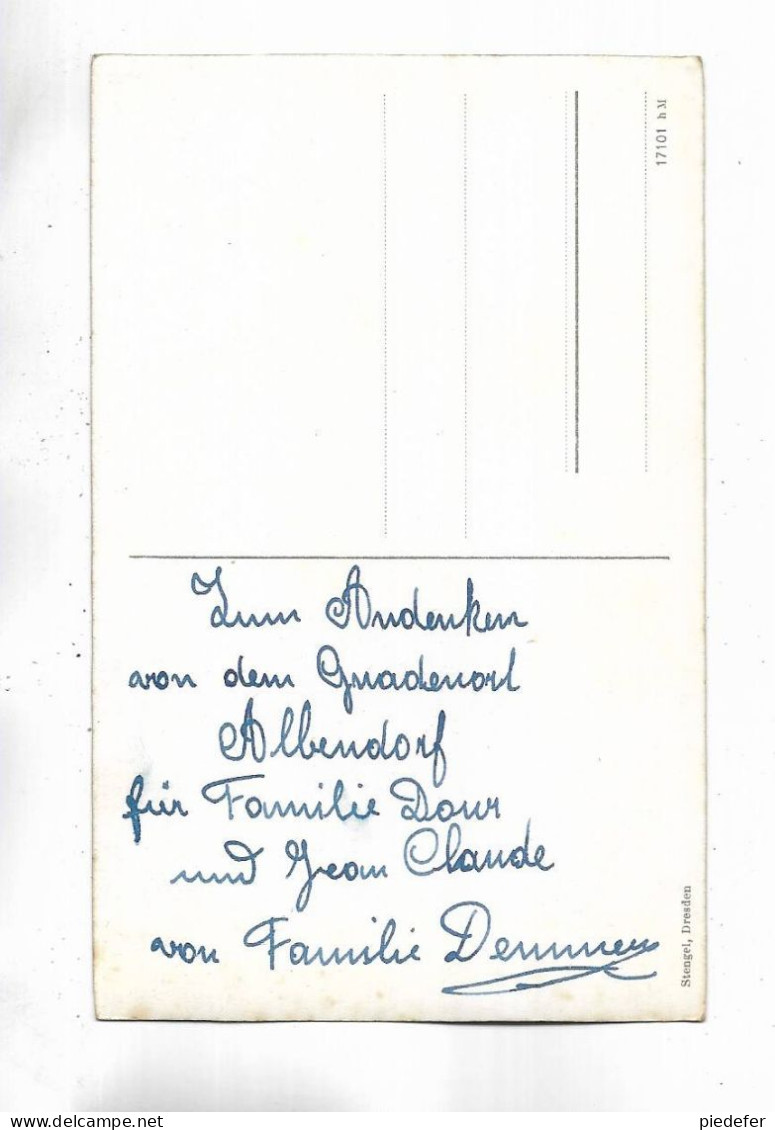 17101 hM
Zum Andenken
von dem Gnadenort
Albendorf
für Familie Dour
und Jean Claude
von Familie
Stengel, Dresden
piedefer